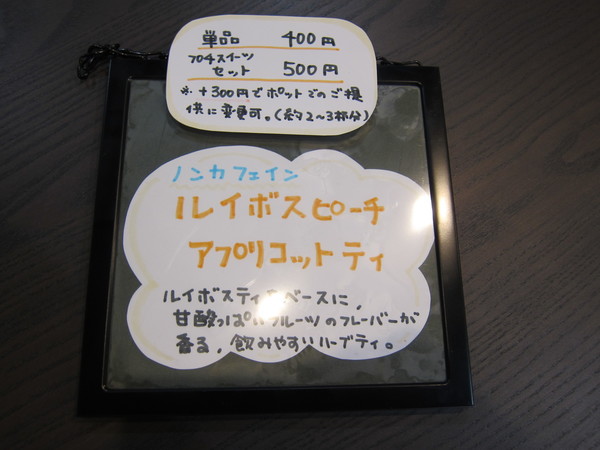 単品 400円
704スイーツ
セット 500円
※ +300円でポットでのご提
供に変更可。(約2~3杯分)
ノンカフェイン
ルイボスピーチ
アプリコットティ
ルイボスティをベースに,
甘酸っぱいフルーツのフレーバーが
香る,飲みやすいハーブティ。